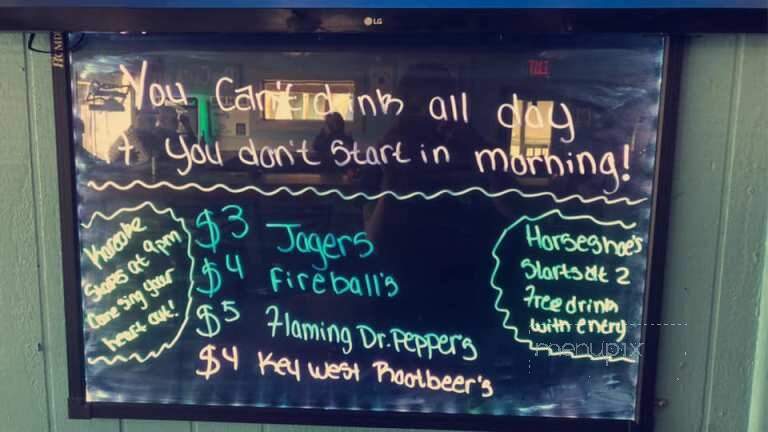 LG
You Can't drink all day
if You don't Start in morning!
Karaoke
Starts at 9pm
Come sing your
heart out!
$3 Jagers
$4 Fireball's
$5 Flaming Dr. Pepper's
$4 Key West Rootbeer's
Horseshoe's
Starts at 2
Free drink
with entry
menupix